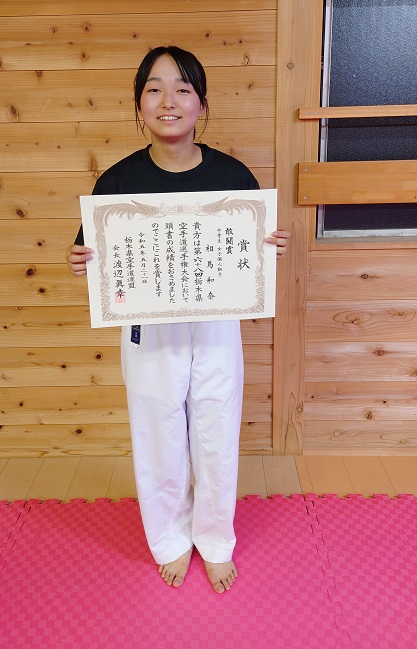 賞状
敢闘賞
中学生 女子個人組手
相馬和奏
貴方は第六十八回栃木県
空手道選手権大会において
頭書の成績をおさめました
のでここにこれを賞します
令和五年五月二十一日
栃木県空手道連盟
会長 渡辺眞幸